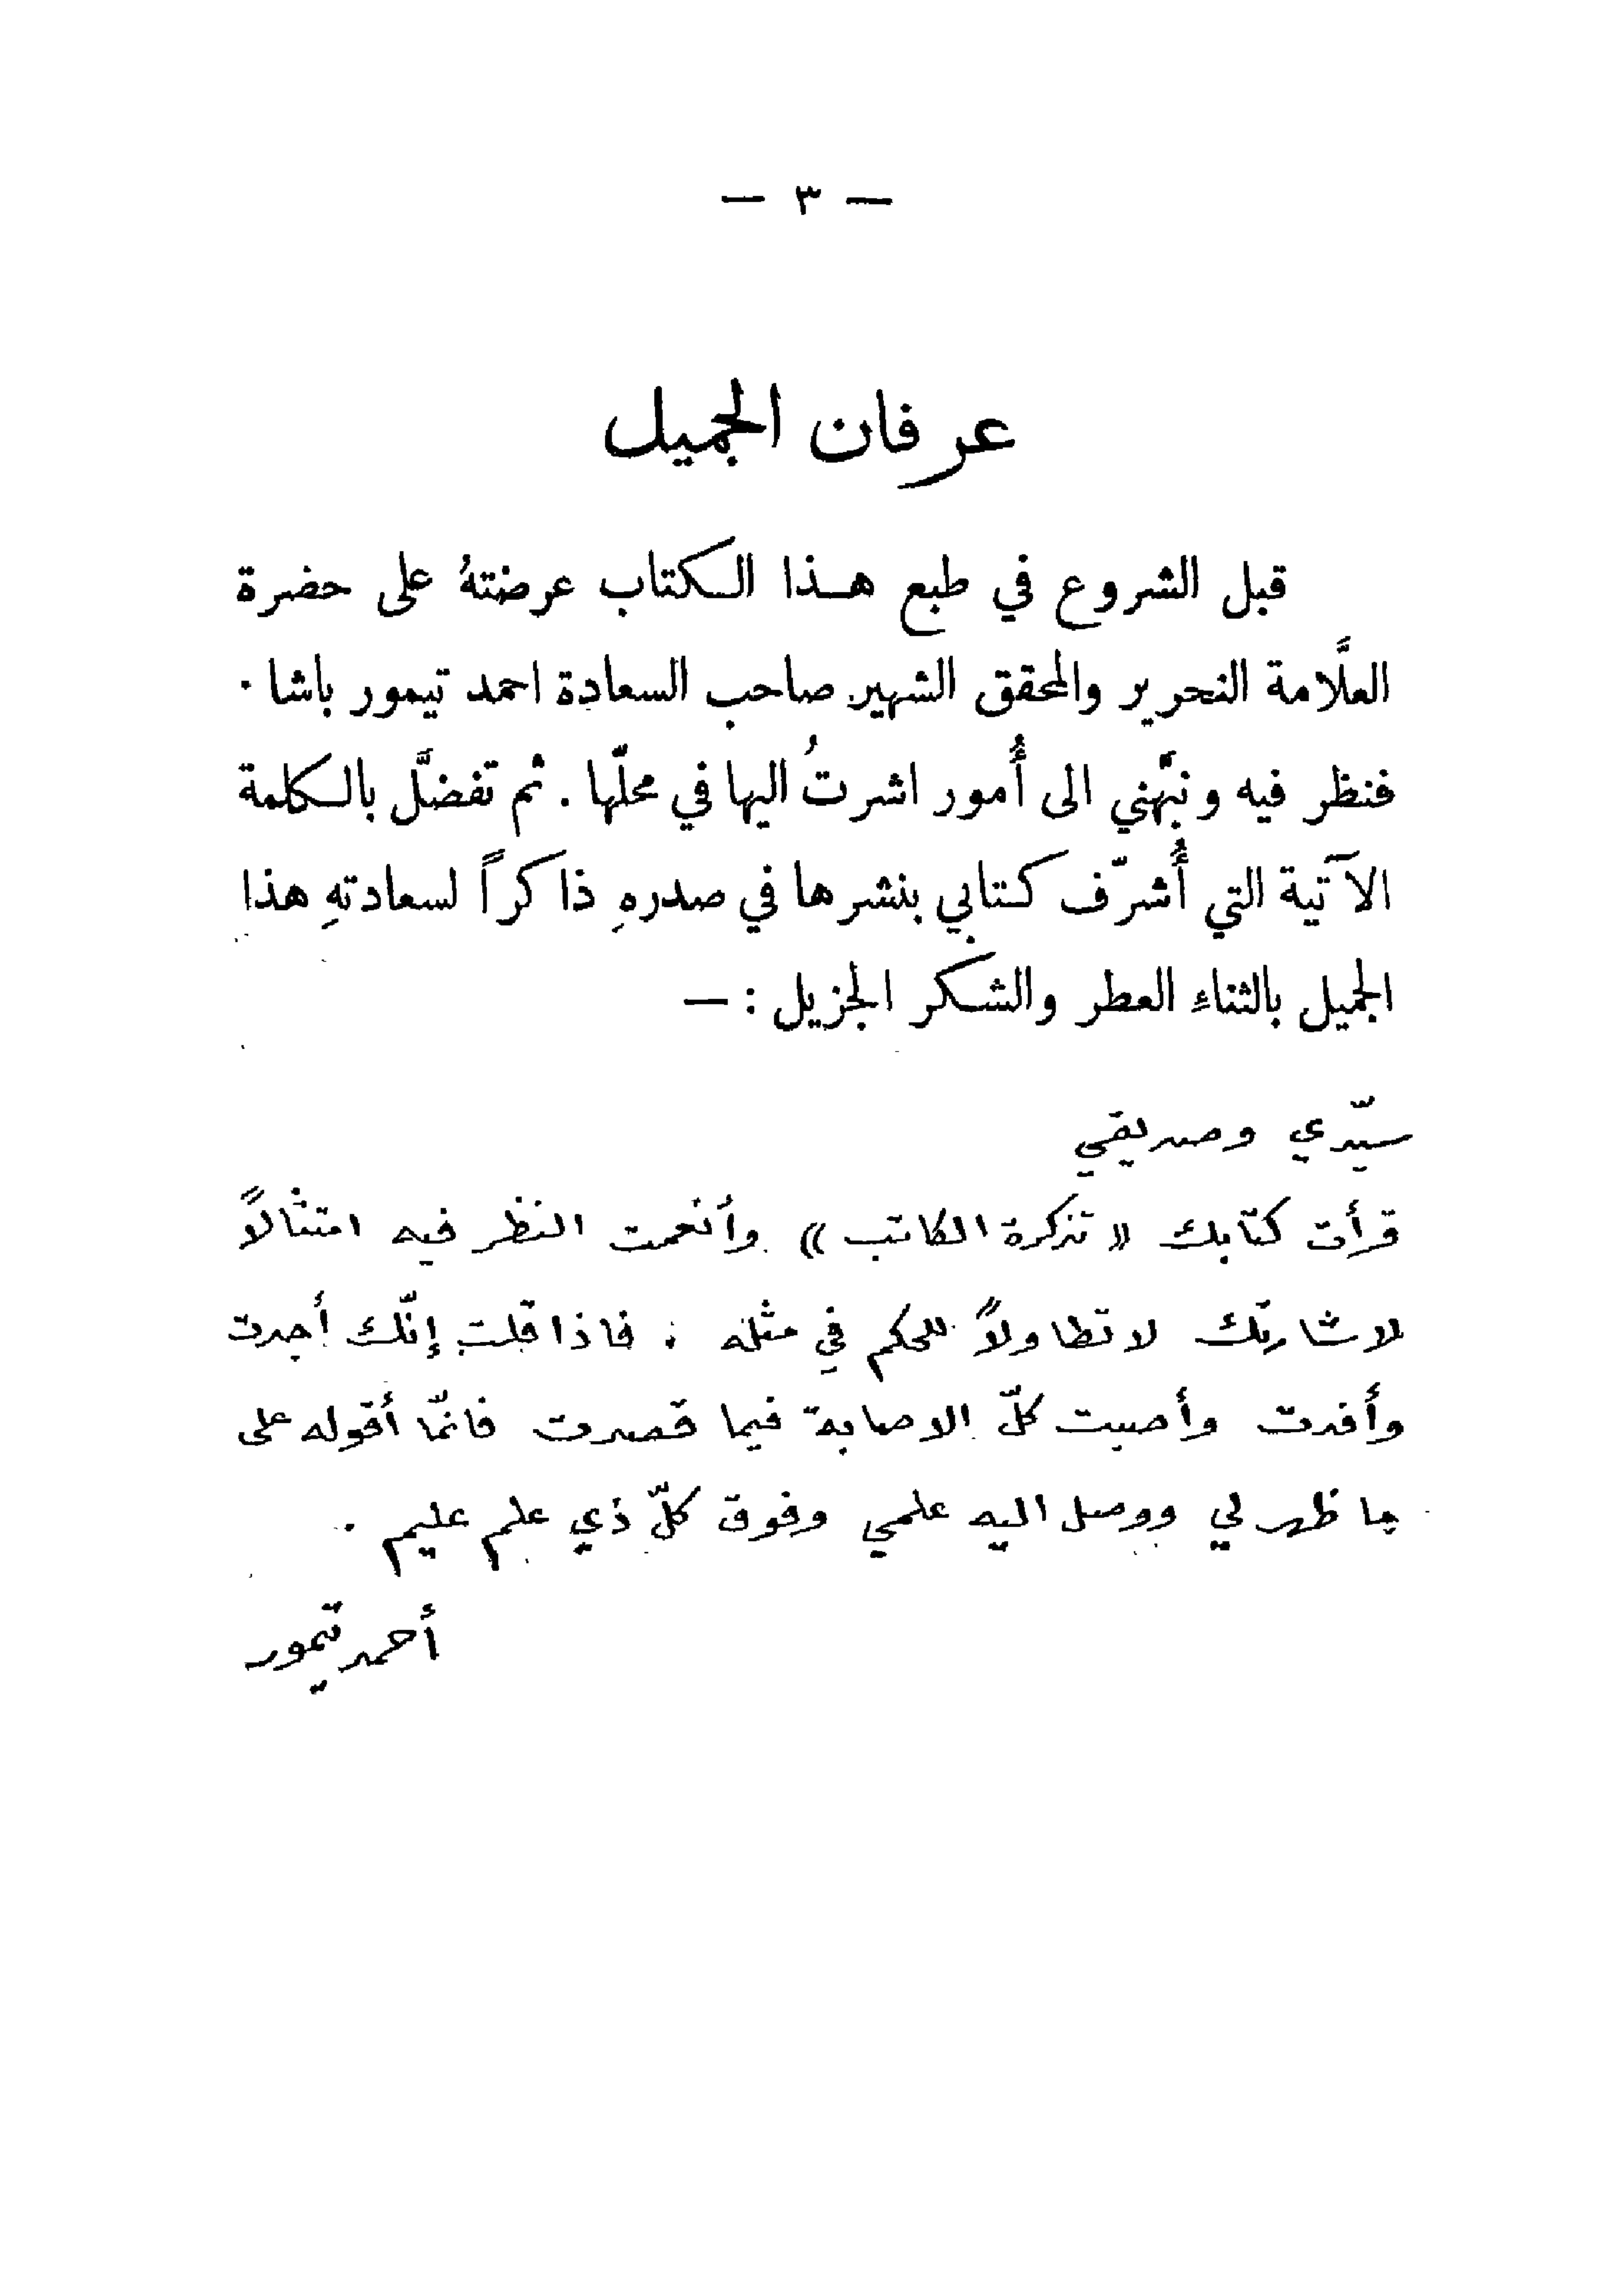 — ٣ —
عرفان الجميل
قبل الشروع في طبع هذا الكتاب عرضتهُ على حضرة
العلَّامة النحرير والمحقق الشهير صاحب السعادة احمد تيمور باشا .
فنظر فيه ونبَّهني الى أُمور اشرتُ اليها في محلّها . ثم تفضَّل بالكلمة
الآتية التي أُشرّف كتابي بنشرها في صدرهِ ذاكراً لسعادتهِ هذا
الجميل بالثناءِ العطر والشكر الجزيل : —
سيّدي وصديقي
قرأت كتابك « تذكرة الكاتب » وأنعمت النظر فيه امتثالاً
لاشارتك لا تطاولاً للحكم في مثله . فاذا قلت إنّك أجدت
وأفدت وأصبت كلّ الاصابة فيما قصدت فانمّا أقوله على
ما ظهر لي ووصل اليه علمي وفوق كلّ ذي علم عليم .
أحمد تيمور